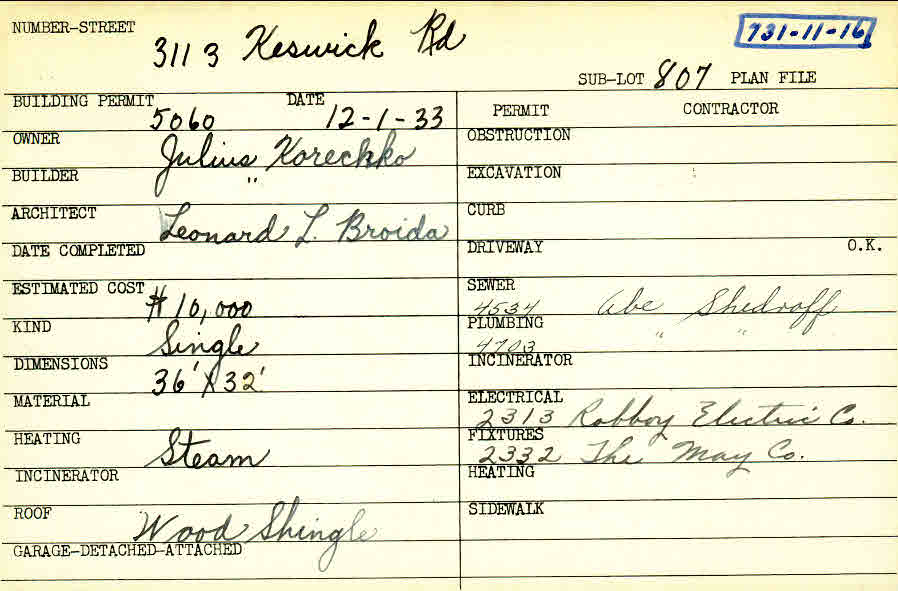 NUMBER-STREET
3113 Keswick Rd
731-11-16
SUB-LOT 807 PLAN FILE
BUILDING PERMIT 5060 DATE 12-1-33
OWNER Julius Korechko
BUILDER "
ARCHITECT Leonard L. Broida
DATE COMPLETED
ESTIMATED COST $10,000
KIND Single
DIMENSIONS 36' X 32'
MATERIAL
HEATING Steam
INCINERATOR
ROOF Wood Shingle
GARAGE-DETACHED-ATTACHED
PERMIT CONTRACTOR
OBSTRUCTION
EXCAVATION
CURB
DRIVEWAY O.K.
SEWER
4534 Abe Shedroff
PLUMBING
4703 " "
INCINERATOR
ELECTRICAL
2313 Robboy Electric Co.
FIXTURES
2332 The May Co.
HEATING
SIDEWALK